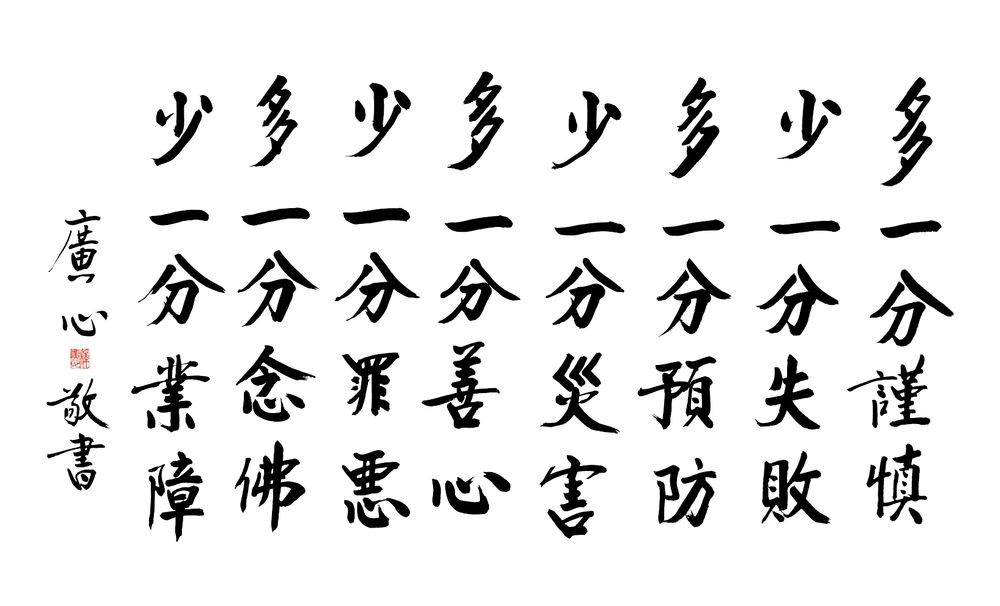 多一分謹慎
少一分失敗
多一分預防
少一分災害
多一分善心
少一分罪悪
多一分念佛
少一分業障
廣心敬書